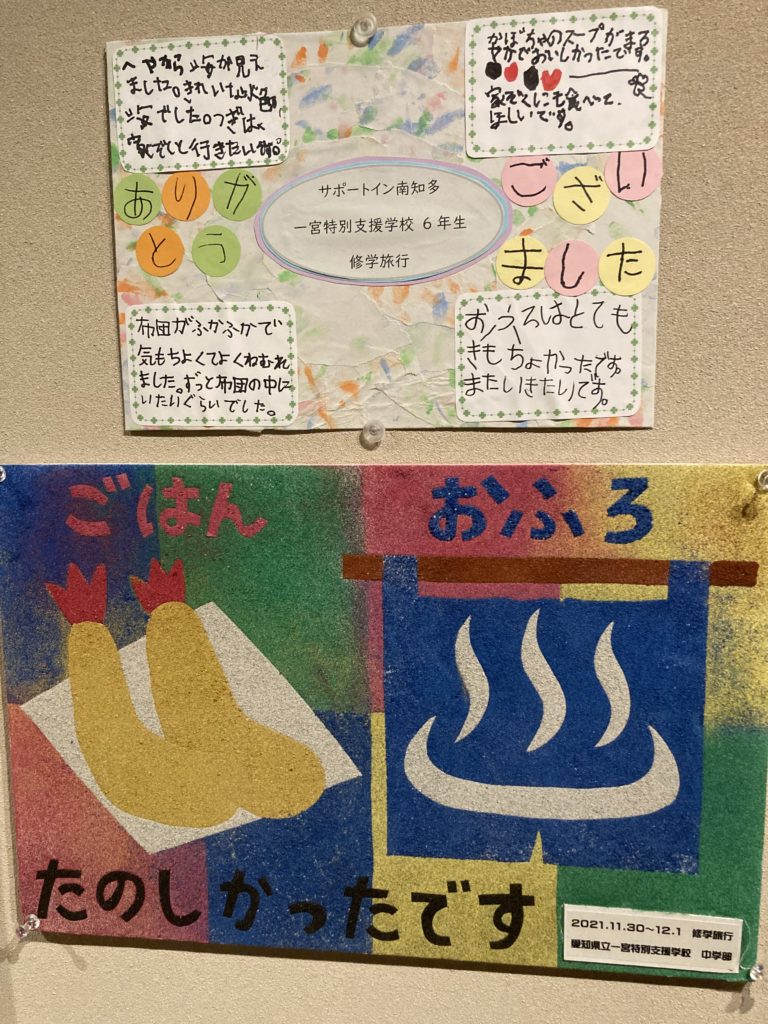 へやから海が見え
ました。きれいな
海でした。つぎは、
家ぞくと行きたいです。
かぼちゃのスープがまろ
やかでおいしかったです。
家ぞくにも食べて
ほしいです。
ありが
とう
ござい
ました
サポートイン南知多
一宮特別支援学校 6年生
修学旅行
布団がふかふかで
気もちよくてよくねむれ
ました。ずっと布団の中に
いたいぐらいでした。
おふろはとても
きもちよかったです。
またいきたいです。
ごはん
おふろ
たのしかったです
2021.11.30~12.1 修学旅行
愛知県立一宮特別支援学校 中学部